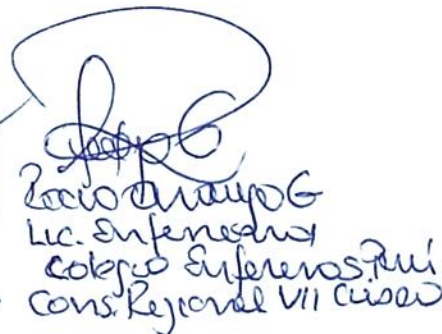 Rocio Araujo G
Lic. Enfermeria
Colegio Enfereros Perú
Cons. Regional VII Cusco